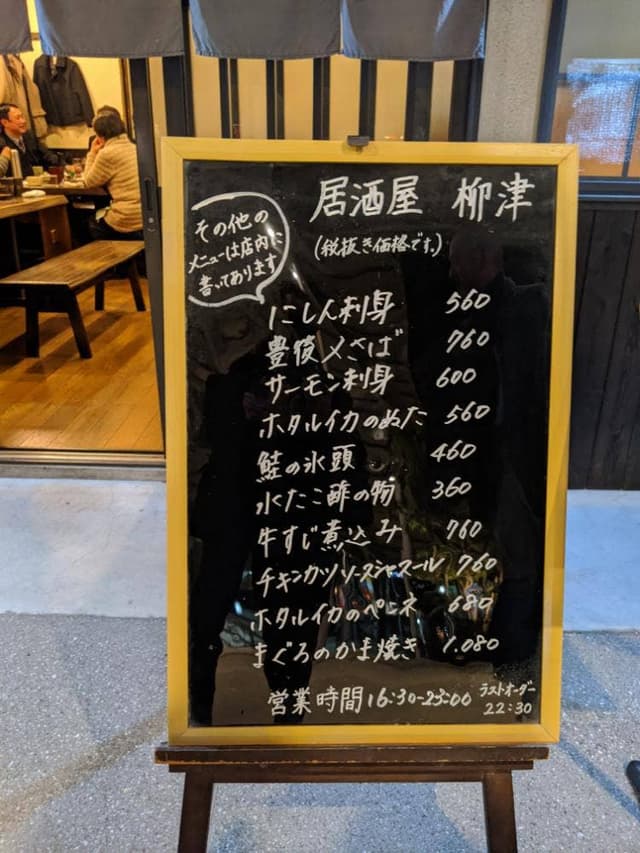 居酒屋 柳津
(税抜き価格です。)
その他の
メニューは店内に
書いてあります
にしん刺身 560
豊後〆さば 760
サーモン刺身 600
ホタルイカのぬた 560
鮭の氷頭 460
水たこ酢の物 360
牛すじ煮込み 760
チキンカツソースジャスール 760
ホタルイカのペペネ 680
まぐろのかま焼き 1.080
営業時間16:30-23:00 ラストオーダー
22:30